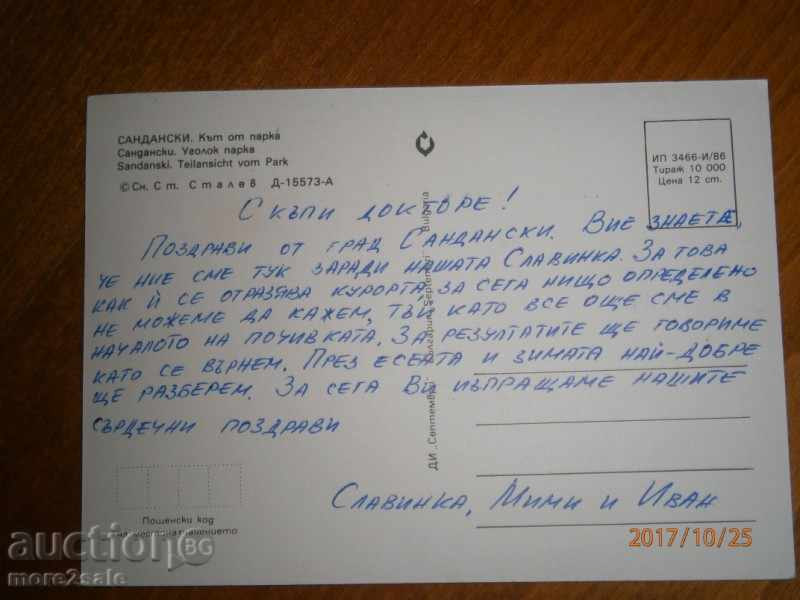 САНДАНСКИ. Кът от парка
Сандански. Уголок парка
Sandanski. Teilansicht vom Park
© Сн. Ст. Сталев Д-15573-А
ИП 3466-И/86
Тираж 10 000
Цена 12 ст.
СКЪПИ ДОКТОРЕ!
ПОЗДРАВИ ОТ ГРАД САНДАНСКИ. ВИЕ ЗНАЕТЕ,
ЧЕ НИЕ СМЕ ТУК ЗАРАДИ НАШАТА СЛАВИНКА. ЗА ТОВА
КАК Й СЕ ОТРАЗЯВА КУРОРТА ЗА СЕГА НИЩО ОПРЕДЕЛЕНО
НЕ МОЖЕМЕ ДА КАЖЕМ, ТЪЙ КАТО ВСЕ ОЩЕ СМЕ В
НАЧАЛОТО НА ПОЧИВКАТА. ЗА РЕЗУЛТАТИТЕ ЩЕ ГОВОРИМЕ
КАТО СЕ ВЪРНЕМ. ПРЕЗ ЕСЕНТА И ЗИМАТА НАЙ-ДОБРЕ
ЩЕ РАЗБЕРЕМ. ЗА СЕГА ВИ ИЗПРАЩАМЕ НАШИТЕ
СЪРДЕЧНИ ПОЗДРАВИ
СЛАВИНКА, МИМИ И ИВАН
ДИ „Септември" България Septemvri Bulgaria
Пощенски код
на местоназначението
2017/10/25
auction BG
more2sale